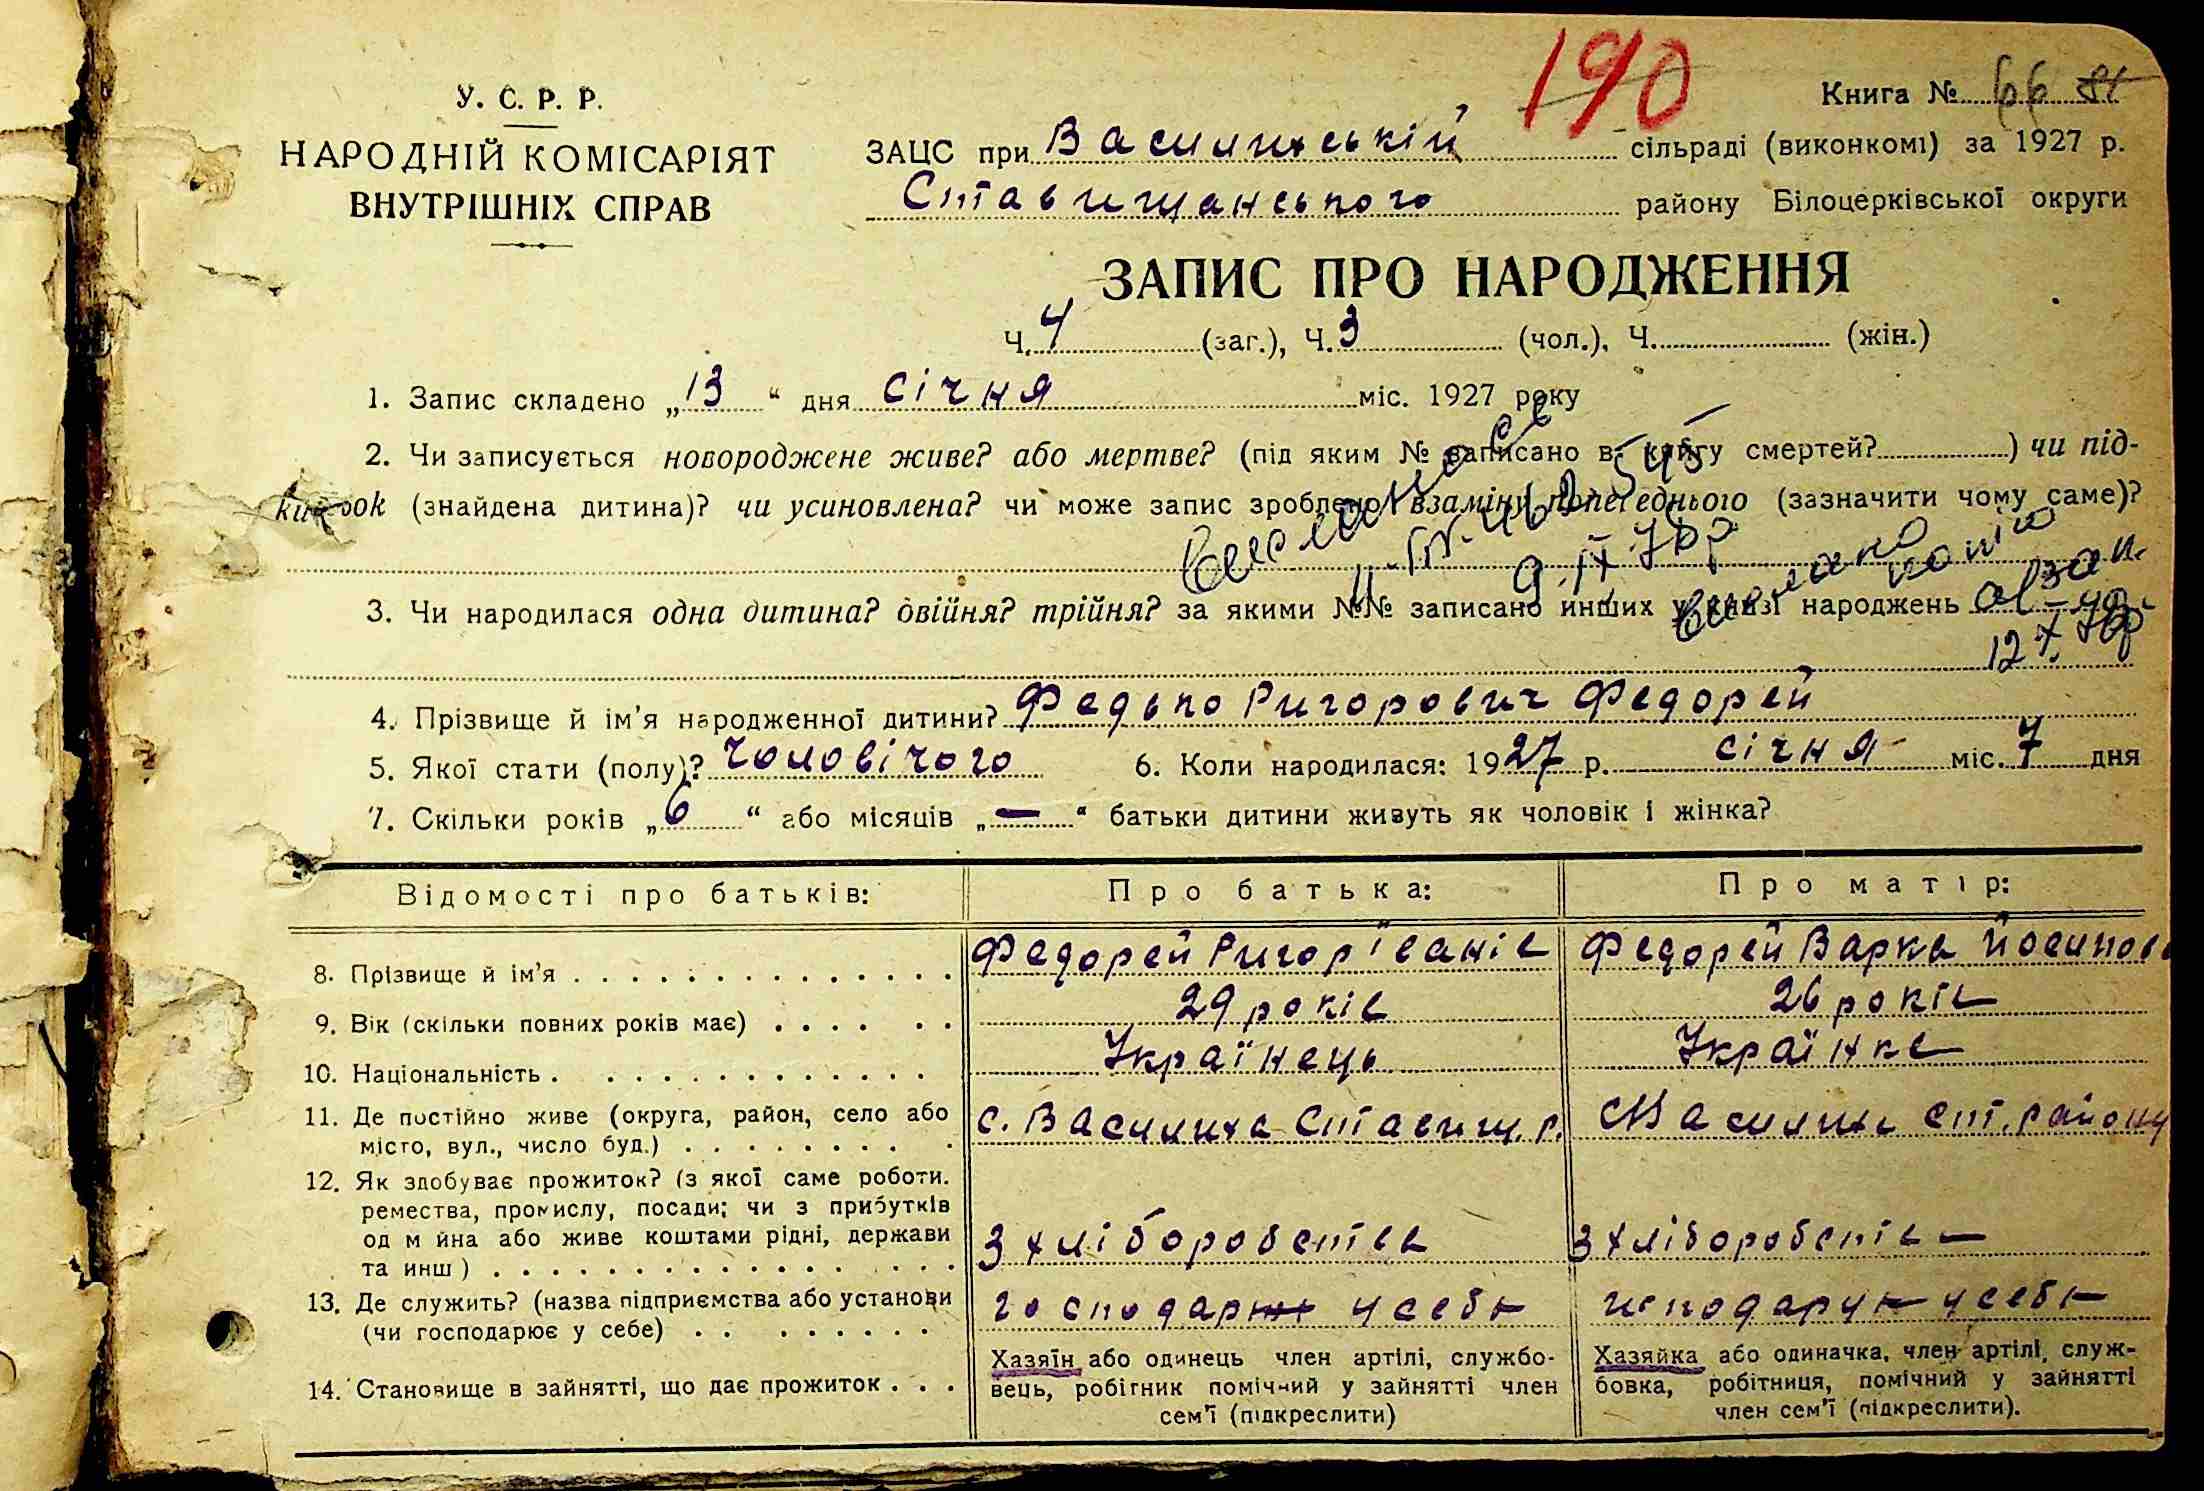 190
У. С. Р. Р.
НАРОДНІЙ КОМІСАРІЯТ
ВНУТРІШНІХ СПРАВ
Книга № 66
ЗАЦС при Василиській сільраді (виконкомі) за 1927 р.
Ставищанського району Білоцерківської округи
ЗАПИС ПРО НАРОДЖЕННЯ
Ч. 4 (заг.), Ч. 3 (чол.), Ч. (жін.)
1. Запис складено „13“ дня січня міс. 1927 року
2. Чи записується новороджене живе? або мертве? (під яким № записано в книгу смертей? ) чи під-
кидьок (знайдена дитина)? чи усиновлена? чи може запис зроблено взаміну попереднього (зазначити чому саме)?
9.IX.76р
вислано копію
3. Чи народилася одна дитина? двійня? трійня? за якими №№ записано инших у книзі народжень
12 X 76р
4. Прізвище й ім’я народженної дитини? Федько Григорович Федорей
5. Якої стати (полу)? чоловічого 6. Коли народилася: 1927 р. січня міс. 7 дня
7. Скільки років „6“ або місяців „—“ батьки дитини живуть як чоловік і жінка?
Відомості про батьків: Про батька: Про матір:
8. Прізвище й ім’я . . . Федорей Ригор Іванів Федорей Варка Йосипов
9. Вік (скільки повних років має) . . . . 29 років 26 років
10. Національність . . . Українець Українка
11. Де постійно живе (округа, район, село або
місто, вул., число буд.) . . . с. Василиха Ставищ. р. с. Василиха Ст. району
12. Як здобуває прожиток? (з якої саме роботи.
ремества, промислу, посади; чи з прибутків
од майна або живе коштами рідні, держави
та инш) . . . З хліборобства З хліборобства
13. Де служить? (назва підприємства або установи
(чи господарює у себе) . . . господарює у себе господарує у себе
14. Становище в зайнятті, що дає прожиток . . .
Хазяїн або одинець член артілі, службо-
вець, робітник помічний у зайнятті член
сем’ї (підкреслити)
Хазяйка або одиначка, член артілі, служ-
бовка, робітниця, помічний у зайнятті
член сем’ї (підкреслити).